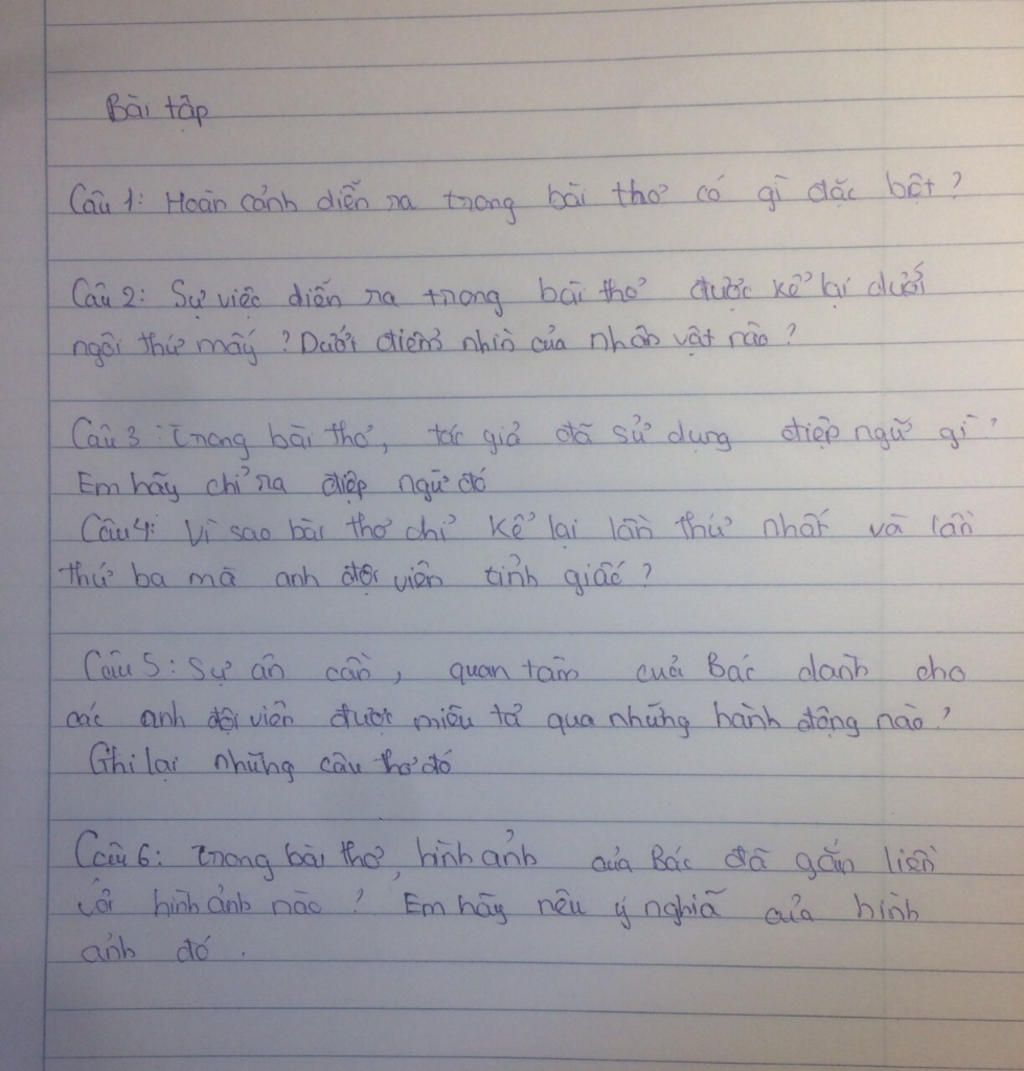 Bài tập
Câu 1: Hoàn cảnh diễn ra trong bài thơ có gì đặc bệt?
Câu 2: Sự việc diễn ra trong bài thơ được kể lại dưới
ngôi thứ mấy? Dưới điểm nhìn của nhân vật nào?
Câu 3: Trong bài thơ, tác giả đã sử dụng điệp ngữ gì?
Em hãy chỉ ra điệp ngữ đó
Câu 4: Vì sao bài thơ chỉ kể lại lần thứ nhất và lần
thứ ba mà anh đội viên tỉnh giấc?
Câu 5: Sự ân cần, quan tâm cuả Bác dành cho
các anh đội viên được miêu tả qua những hành động nào?
Ghi lại những câu thơ đó
Câu 6: Trong bài thơ, hình ảnh của Bác đã gắn liền
với hình ảnh nào? Em hãy nêu ý nghiã của hình
ảnh đó.